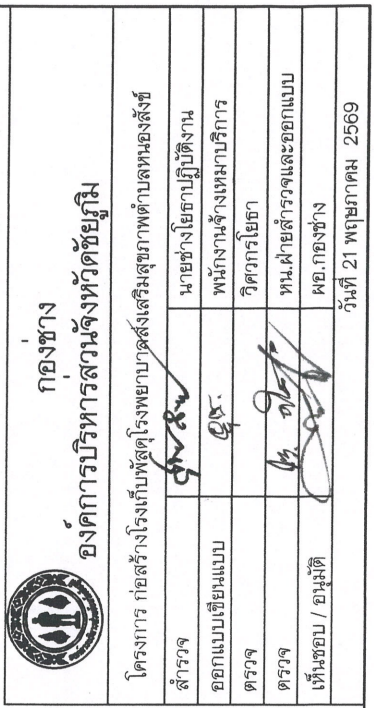 กองช่าง
องค์การบริหารส่วนจังหวัดชัยภูมิ
โครงการ ก่อสร้างโรงเก็บพัสดุโรงพยาบาลส่งเสริมสุขภาพตำบลหนองสังข์
สำรวจ นายช่างโยธาปฏิบัติงาน
ออกแบบเขียนแบบ พนักงานจ้างเหมาบริการ
ตรวจ วิศวกรโยธา
ตรวจ หน.ฝ่ายสำรวจและออกแบบ
เห็นชอบ / อนุมัติ ผอ.กองช่าง
วันที่ 21 พฤษภาคม 2569